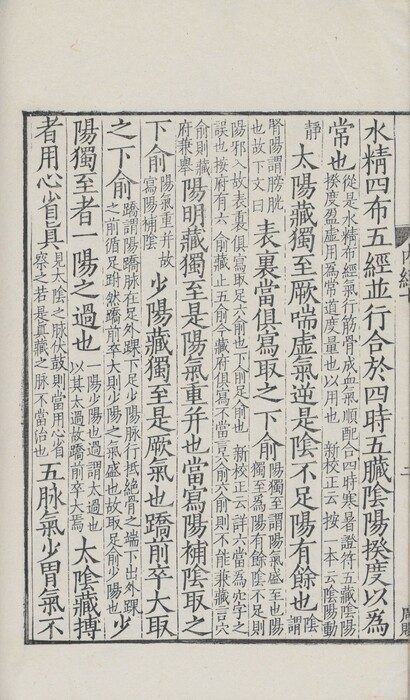 水精四布五經並行合於四時五臟陰陽揆度以為
常也
從是水精布經氣行筋骨成血氣順配合四時寒暑證符五藏陰陽
揆度盈虛用為常道度量也以用也　新校正云按一本云陰陽動
静
太陽藏獨至厥喘虛氣逆是陰不足陽有餘也
陰
謂
腎陽謂膀胱
也故下文曰
表裏當俱寫取之下俞
陽獨至謂陽氣盛至也陽
獨至為陽有餘陰不足則
陽邪入故表裏俱寫取足六俞也下俞足俞也　新校正云詳六當為穴字之
誤也按府有六俞藏止五俞今藏府俱寫不當言六俞六俞則不能兼藏言穴
俞則藏
府兼舉
陽明藏獨至是陽氣重并也當寫陽補陰取之
下俞
陽氣重并故
寫陽補陰
少陽藏獨至是厥氣也蹻前卒大取
之下俞
蹻謂陽蹻脈在足外踝下足少陽脈行抵絶骨之端下出外踝
之前循足跗然蹻前卒大則少陽之氣盛也故取足俞少陽也
少
陽獨至者一陽之過也
一陽少陽也過謂太過也
以其太過故蹻前卒大焉
太陰藏搏
者用心省真
見太陰之脈伏鼓則當用心省
察之若是真藏之脈不當治也
五脈氣少胃氣不